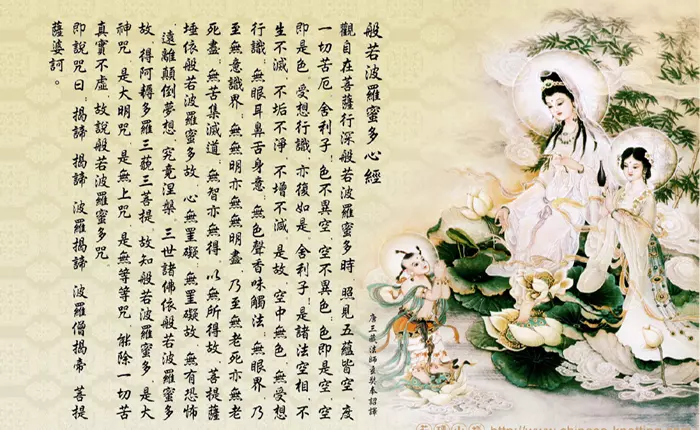 般若波羅蜜多心經
觀自在菩薩行深般若波羅蜜多時 照見五蘊皆空 度
一切苦厄 舍利子！色不異空 空不異色；色即是空，空
即是色 受想行識 亦復如是 舍利子！是諸法空相，不
生不滅 不垢不淨 不增不減 是故，空中無色，無受想
行識；無眼耳鼻舌身意；無色聲香味觸法；無眼界 乃
至無意識界；無無明亦無無明盡，乃至無老死亦無老
死盡；無苦集滅道；無智亦無得 以無所得故，菩提薩
埵依般若波羅蜜多故 心無罣礙 無罣礙故 無有恐怖
遠離顛倒夢想 究竟涅槃 三世諸佛依般若波羅蜜多
故 得阿耨多羅三藐三菩提 故知般若波羅蜜多 是大
神咒 是大明咒 是無上咒 是無等等咒 能除一切苦
真實不虛 故說般若波羅蜜多咒
即說咒曰：揭諦 揭諦 波羅揭諦 波羅僧揭帝 菩提
薩婆訶。
唐三藏法師玄奘奉詔譯